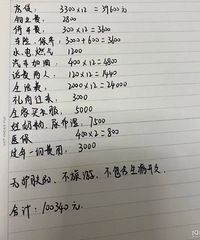 房贷: 3300×12 = 39600元
物业费 2800
停车费 300×12 = 3600
车险、保养 3000+600 = 3600
水、电燃气 1200
汽车加油 400×12 = 4800
话费两人 120×12 = 1440
生活费 2000×12 = 24000
礼尚往来 3000
全家买衣服 5000
奶粉, 尿不湿 7500
医保 400×2 = 800
过年一切费用 3000
无护肤品、不旅游、不包含生病开支、
合计: 100340元